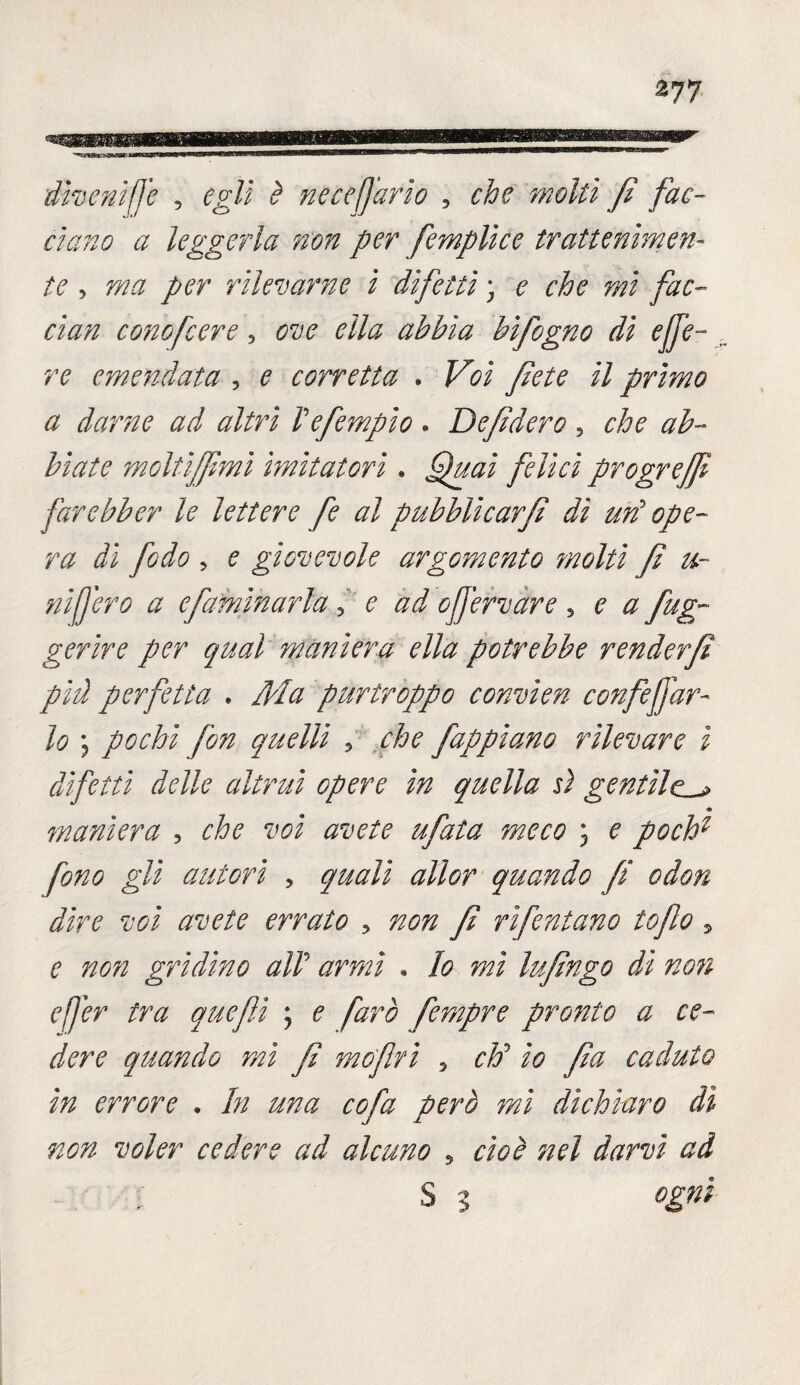 277
diveniſſe , egli è neceſſario , che molti ſi fac-
ciano a leggerla non per ſemplice trattenimen-
te , ma per rilevarne i difetti ; e che mi fac-
cian conoſcere , ove ella abbia biſogno di eſſe-
re emendata , e corretta . Voi ſiete il primo
a darne ad altri l'eſempio . Deſidero , che ab-
biate moltiſſimi imitatori . Quai felici progreſſi
farebber le lettere ſe al pubblicarſi di un' ope-
ra di ſodo , e giovevole argomento molti ſi u-
niſſero a eſaminarla , e ad oſſervare , e a ſug-
gerire per qual maniera ella potrebbe renderſi
più perfetta . Ma purtroppo convien confeſſar-
lo ; pochi ſon quelli , che ſappiano rilevare i
difetti delle altrui opere in quella sì gentile
maniera , che voi avete uſata meco ; e pochi
ſono gli autori , quali allor quando ſi odon
dire voi avete errato , non ſi riſentano toſto ,
e non gridino all' armi . Io mi luſingo di non
eſſer tra queſti ; e farò ſempre pronto a ce-
dere quando mi ſi moſtri , ch' io ſia caduto
in errore . In una coſa però mi dichiaro di
non voler cedere ad alcuno , cioè nel darvi ad
S 3 ogni